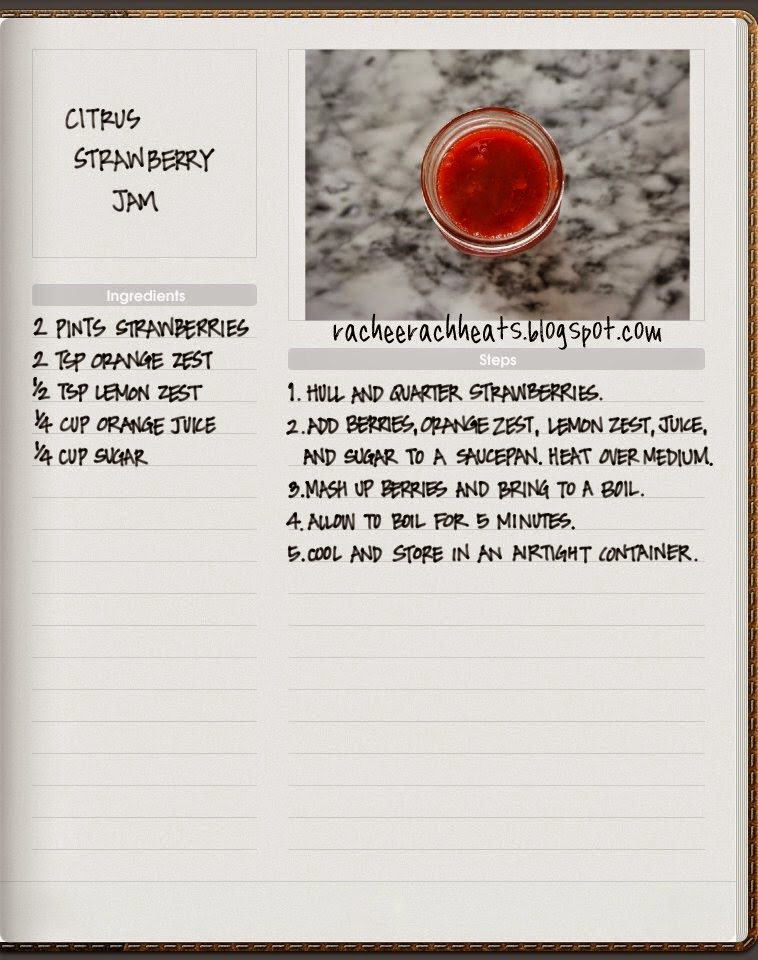 CITRUS
STRAWBERRY
JAM
Ingredients
2 PINTS STRAWBERRIES
2 TSP ORANGE ZEST
½ TSP LEMON ZEST
¼ CUP ORANGE JUICE
¼ CUP SUGAR
racheerachheats.blogspot.com
Steps
1. HULL AND QUARTER STRAWBERRIES.
2. ADD BERRIES, ORANGE ZEST, LEMON ZEST, JUICE,
AND SUGAR TO A SAUCEPAN. HEAT OVER MEDIUM.
3. MASH UP BERRIES AND BRING TO A BOIL.
4. ALLOW TO BOIL FOR 5 MINUTES.
5. COOL AND STORE IN AN AIRTIGHT CONTAINER.